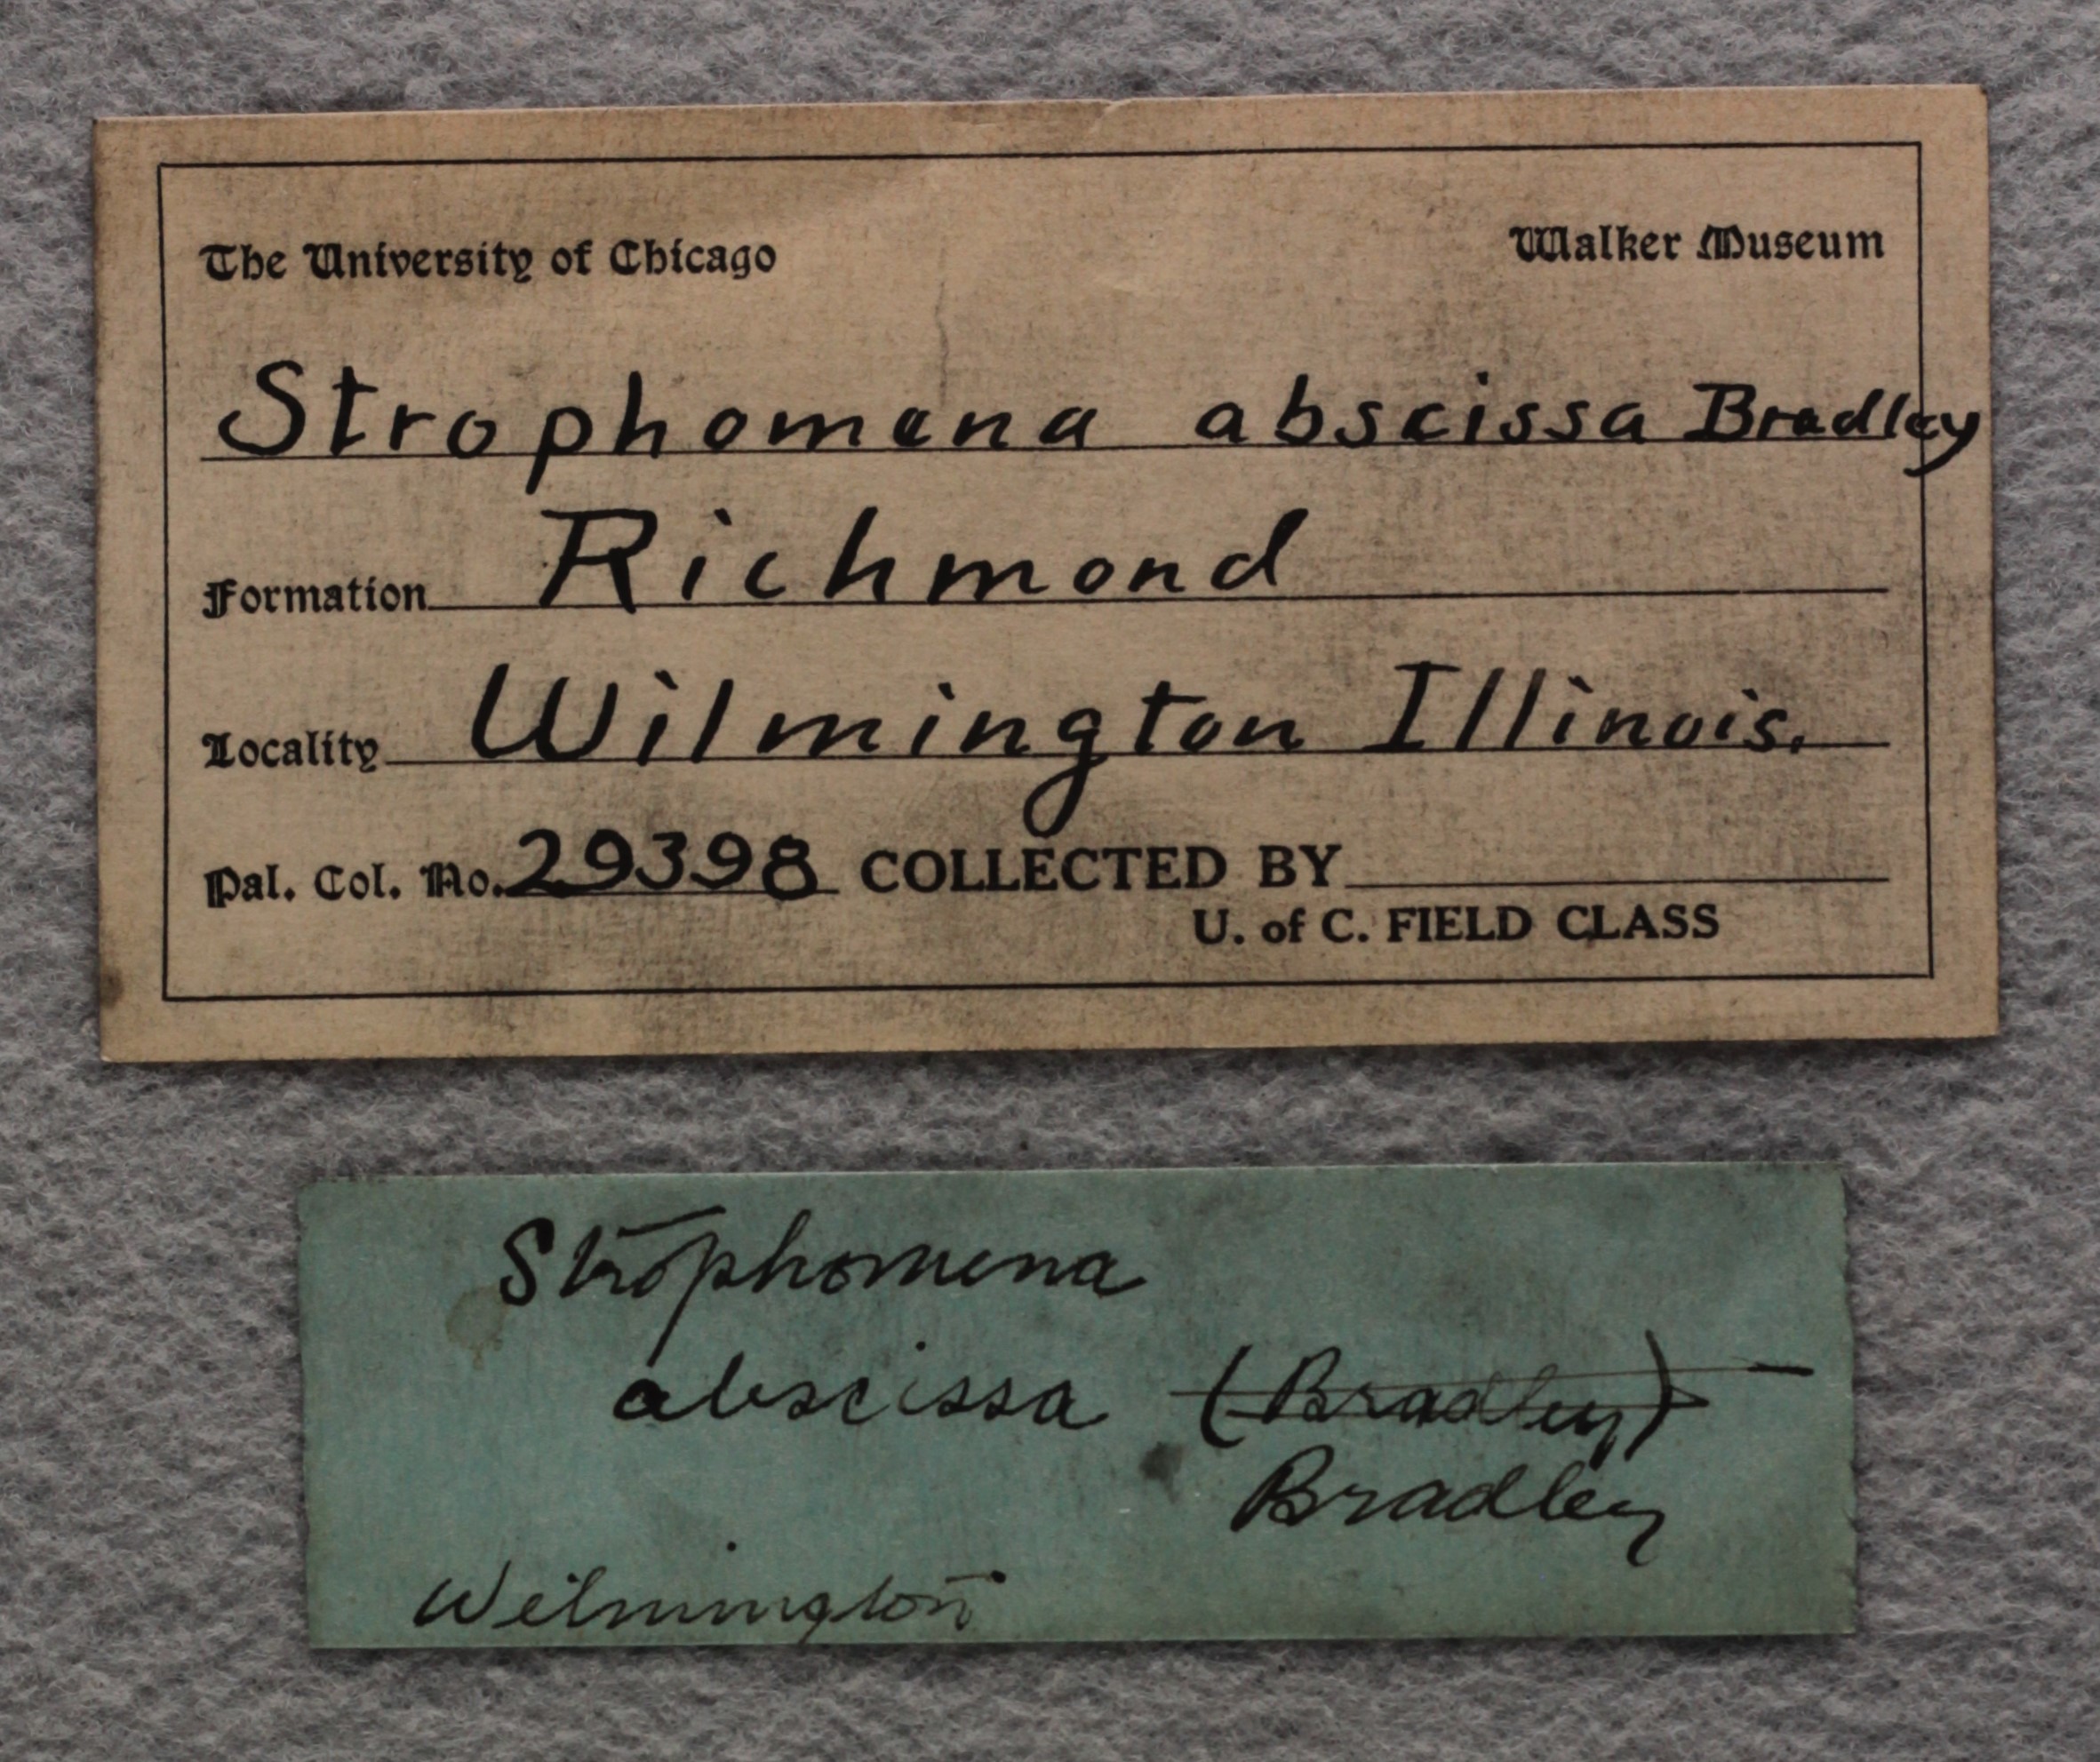 The University of Chicago Walker Museum
Strophomena abscissa Bradley
Formation Richmond
Locality Wilmington Illinois.
Pal. Col. No. 29398 COLLECTED BY
U. of C. FIELD CLASS
Strophomena
abscissa (Bradley)
Bradley
Wilmington